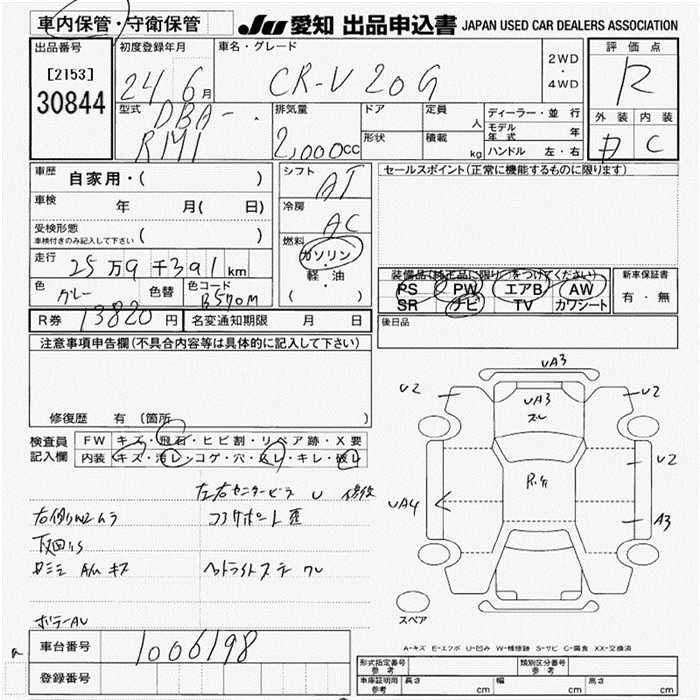 車内保管・守衛保管
JU 愛知 出品申込書 JAPAN USED CAR DEALERS ASSOCIATION
出品番号
[2153]
30844
初度登録年月
24 6月
車名・グレード
CR-V 20G
2WD
・
4WD
評価点
R
外装 内装
C
型式
DBA-
RM1
排気量
2,000cc
ドア
形状
定員
人
積載
kg
ディーラー・並行
モデル年式
年
ハンドル 左・右
車歴
自家用・( )
車検
年 月( 日)
受検形態
車検付きのみ記入して下さい ( )
走行
25万9千391km
色
グレー
色替
色コード
B570M
R券 13820円
名変通知期限 月 日
シフト
AT
冷房
AC
燃料
ガソリン
・
軽・油
( )
セールスポイント(正常に機能するものに限ります)
装備品(純正品に限り○をつけてください)
PS PW エアB AW
SR ナビ TV カワシート
新車保証書
有・無
後日品
注意事項申告欄(不具合内容等は具体的に記入して下さい)
修復歴 有(箇所 )
検査員
記入欄
FW キズ・飛石・ヒビ割・リペア跡・X要
内装 キズ・汚レ・コゲ・穴・スレ・キレ・破レ
左右センターピラー U 修後
コアサポート歪
下回りS
AW キズ
ヘッドライトステー
UA3
U2
U2
UA3
スレ
R.
U2
UA4
A3
スペア
A-キズ E-エクボ U-凹み W-補修跡 S-サビ C-腐食 XX-交換済
車台番号 1006198
登録番号
形式指定番号
参考
類別区分番号
参考
車庫証明用
参考
長さ cm
幅 cm
高さ cm